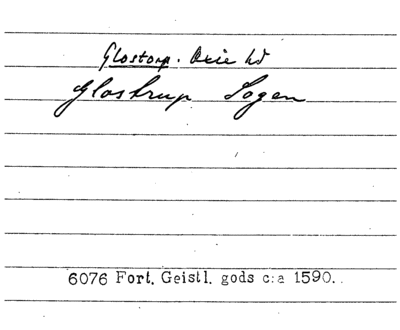 Glostorp. Oxie hd
Glostrup Sogen
6076 Fort. Geistl. gods c:a 1590.